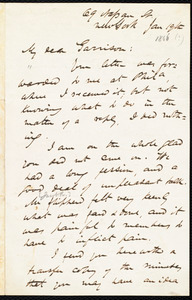 69 Nassau St.
New York Jan 19th
1886
My dear Garrison:
Your letter was for-
warded to me at Phila
where I received it, but not
knowing what to do in the
matter of a reply I did noth-
ing.
I am on the whole glad
you did not come in. We
had a long session, and a
good deal of unpleasant
Mr. felt very
what was said & done, and it
was painful to members to
have to inflict pain.
I send you herewith a
transfer copy of the minutes,
that you may have an idea